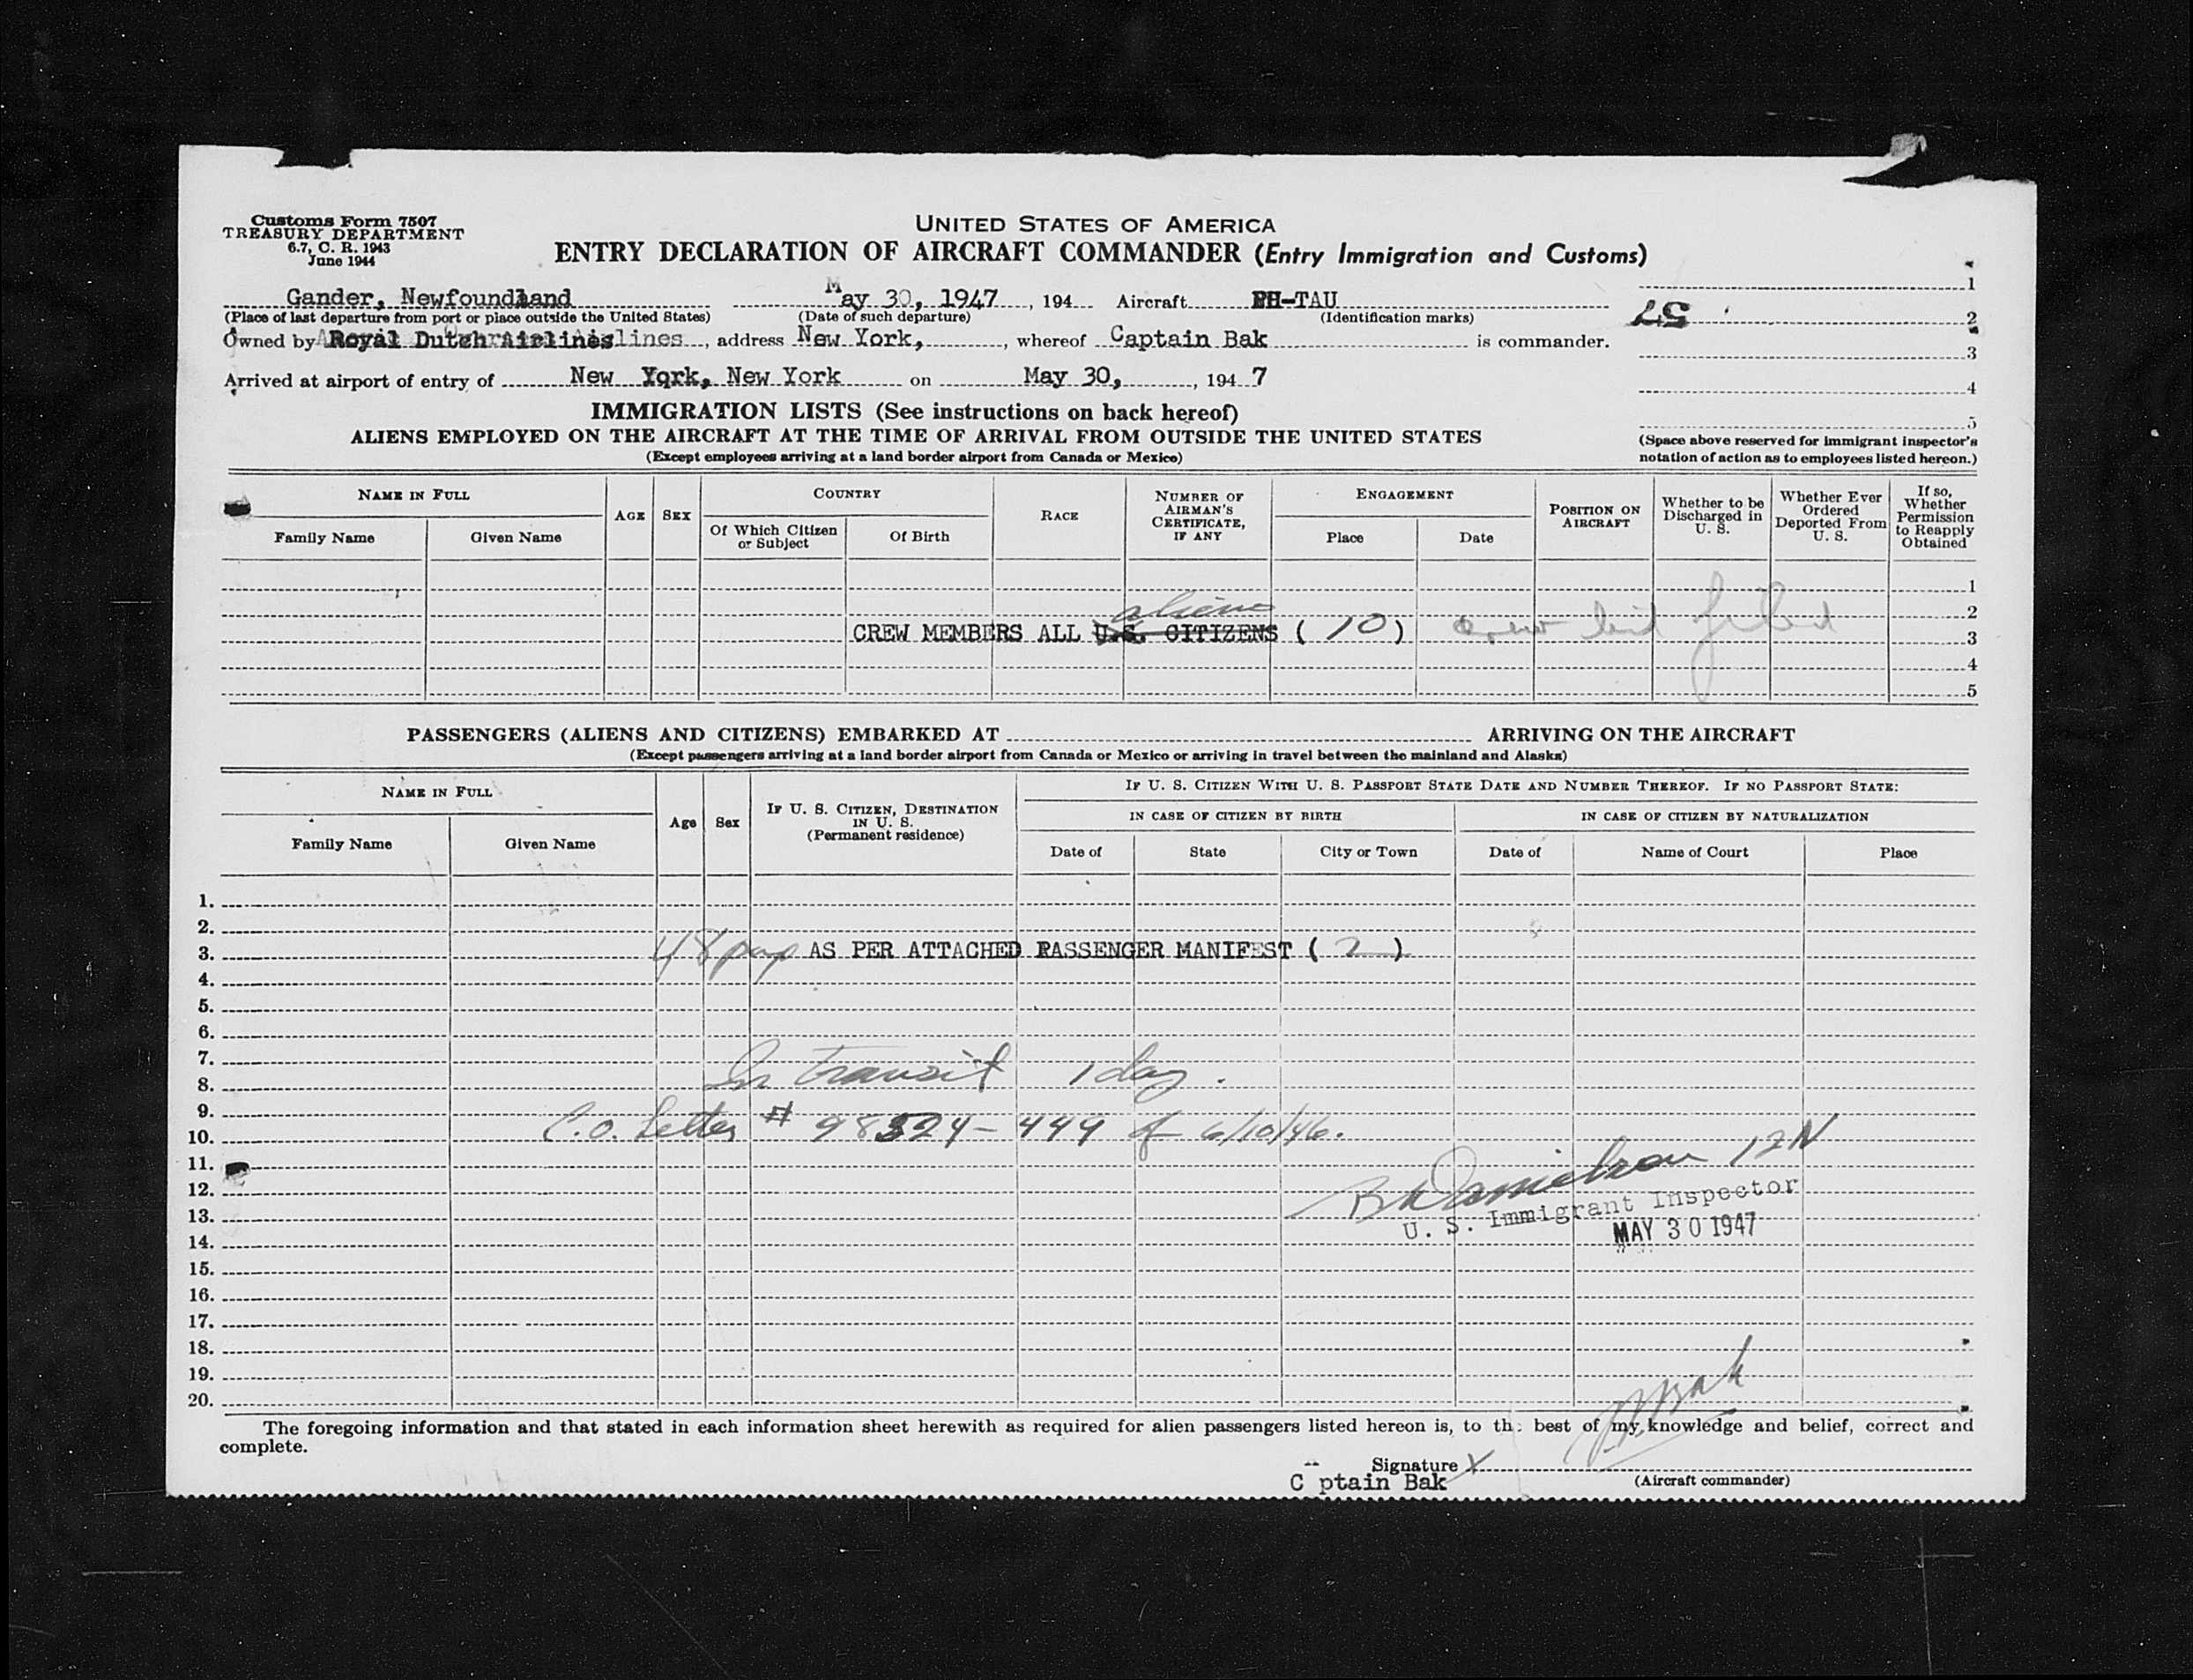 Customs Form 7507
TREASURY DEPARTMENT
6.7, C. R. 1943
June 1944
UNITED STATES OF AMERICA
ENTRY DECLARATION OF AIRCRAFT COMMANDER (Entry Immigration and Customs)
Gander, Newfoundland May 30, 1947, 194 Aircraft PH-TAU
(Place of last departure from port or place outside the United States) (Date of such departure) (Identification marks)
Owned by Royal Dutch Airlines, address New York, , whereof Captain Bak is commander.
Arrived at airport of entry of New York, New York on May 30, , 194 7
1
57
2
3
4
5
(Space above reserved for immigrant inspector's
notation of action as to employees listed hereon.)
IMMIGRATION LISTS (See instructions on back hereof)
ALIENS EMPLOYED ON THE AIRCRAFT AT THE TIME OF ARRIVAL FROM OUTSIDE THE UNITED STATES
(Except employees arriving at a land border airport from Canada or Mexico)
NAME IN FULL
Family Name Given Name
AGE SEX
COUNTRY
Of Which Citizen
or Subject
Of Birth
RACE
NUMBER OF
AIRMAN'S
CERTIFICATE,
IF ANY
ENGAGEMENT
Place Date
POSITION ON
AIRCRAFT
Whether to be
Discharged in
U. S.
Whether Ever
Ordered
Deported From
U. S.
If so,
Whether
Permission
to Reapply
Obtained
1
aliens 2
CREW MEMBERS ALL U.S. CITIZENS ( 10 ) crew list filed 3
4
5
PASSENGERS (ALIENS AND CITIZENS) EMBARKED AT ARRIVING ON THE AIRCRAFT
(Except passengers arriving at a land border airport from Canada or Mexico or arriving in travel between the mainland and Alaska)
NAME IN FULL
Family Name Given Name
Age Sex
IF U. S. CITIZEN, DESTINATION
IN U. S.
(Permanent residence)
IF U. S. CITIZEN WITH U. S. PASSPORT STATE DATE AND NUMBER THEREOF. IF NO PASSPORT STATE:
IN CASE OF CITIZEN BY BIRTH IN CASE OF CITIZEN BY NATURALIZATION
Date of State City or Town Date of Name of Court Place
1.
2.
3. 48 pax AS PER ATTACHED PASSENGER MANIFEST ( 2 )
4.
5.
6.
7.
8. In transit 1 day.
9.
10. C.O. Letter # 98324-449 of 6/10/46.
11. Danielson 12N
12.
13. U. S. Immigrant Inspector
14. MAY 30 1947
15.
16.
17.
18.
19.
20.
Bak
The foregoing information and that stated in each information sheet herewith as required for alien passengers listed hereon is, to the best of my knowledge and belief, correct and
complete.
Signature X
C ptain Bak (Aircraft commander)